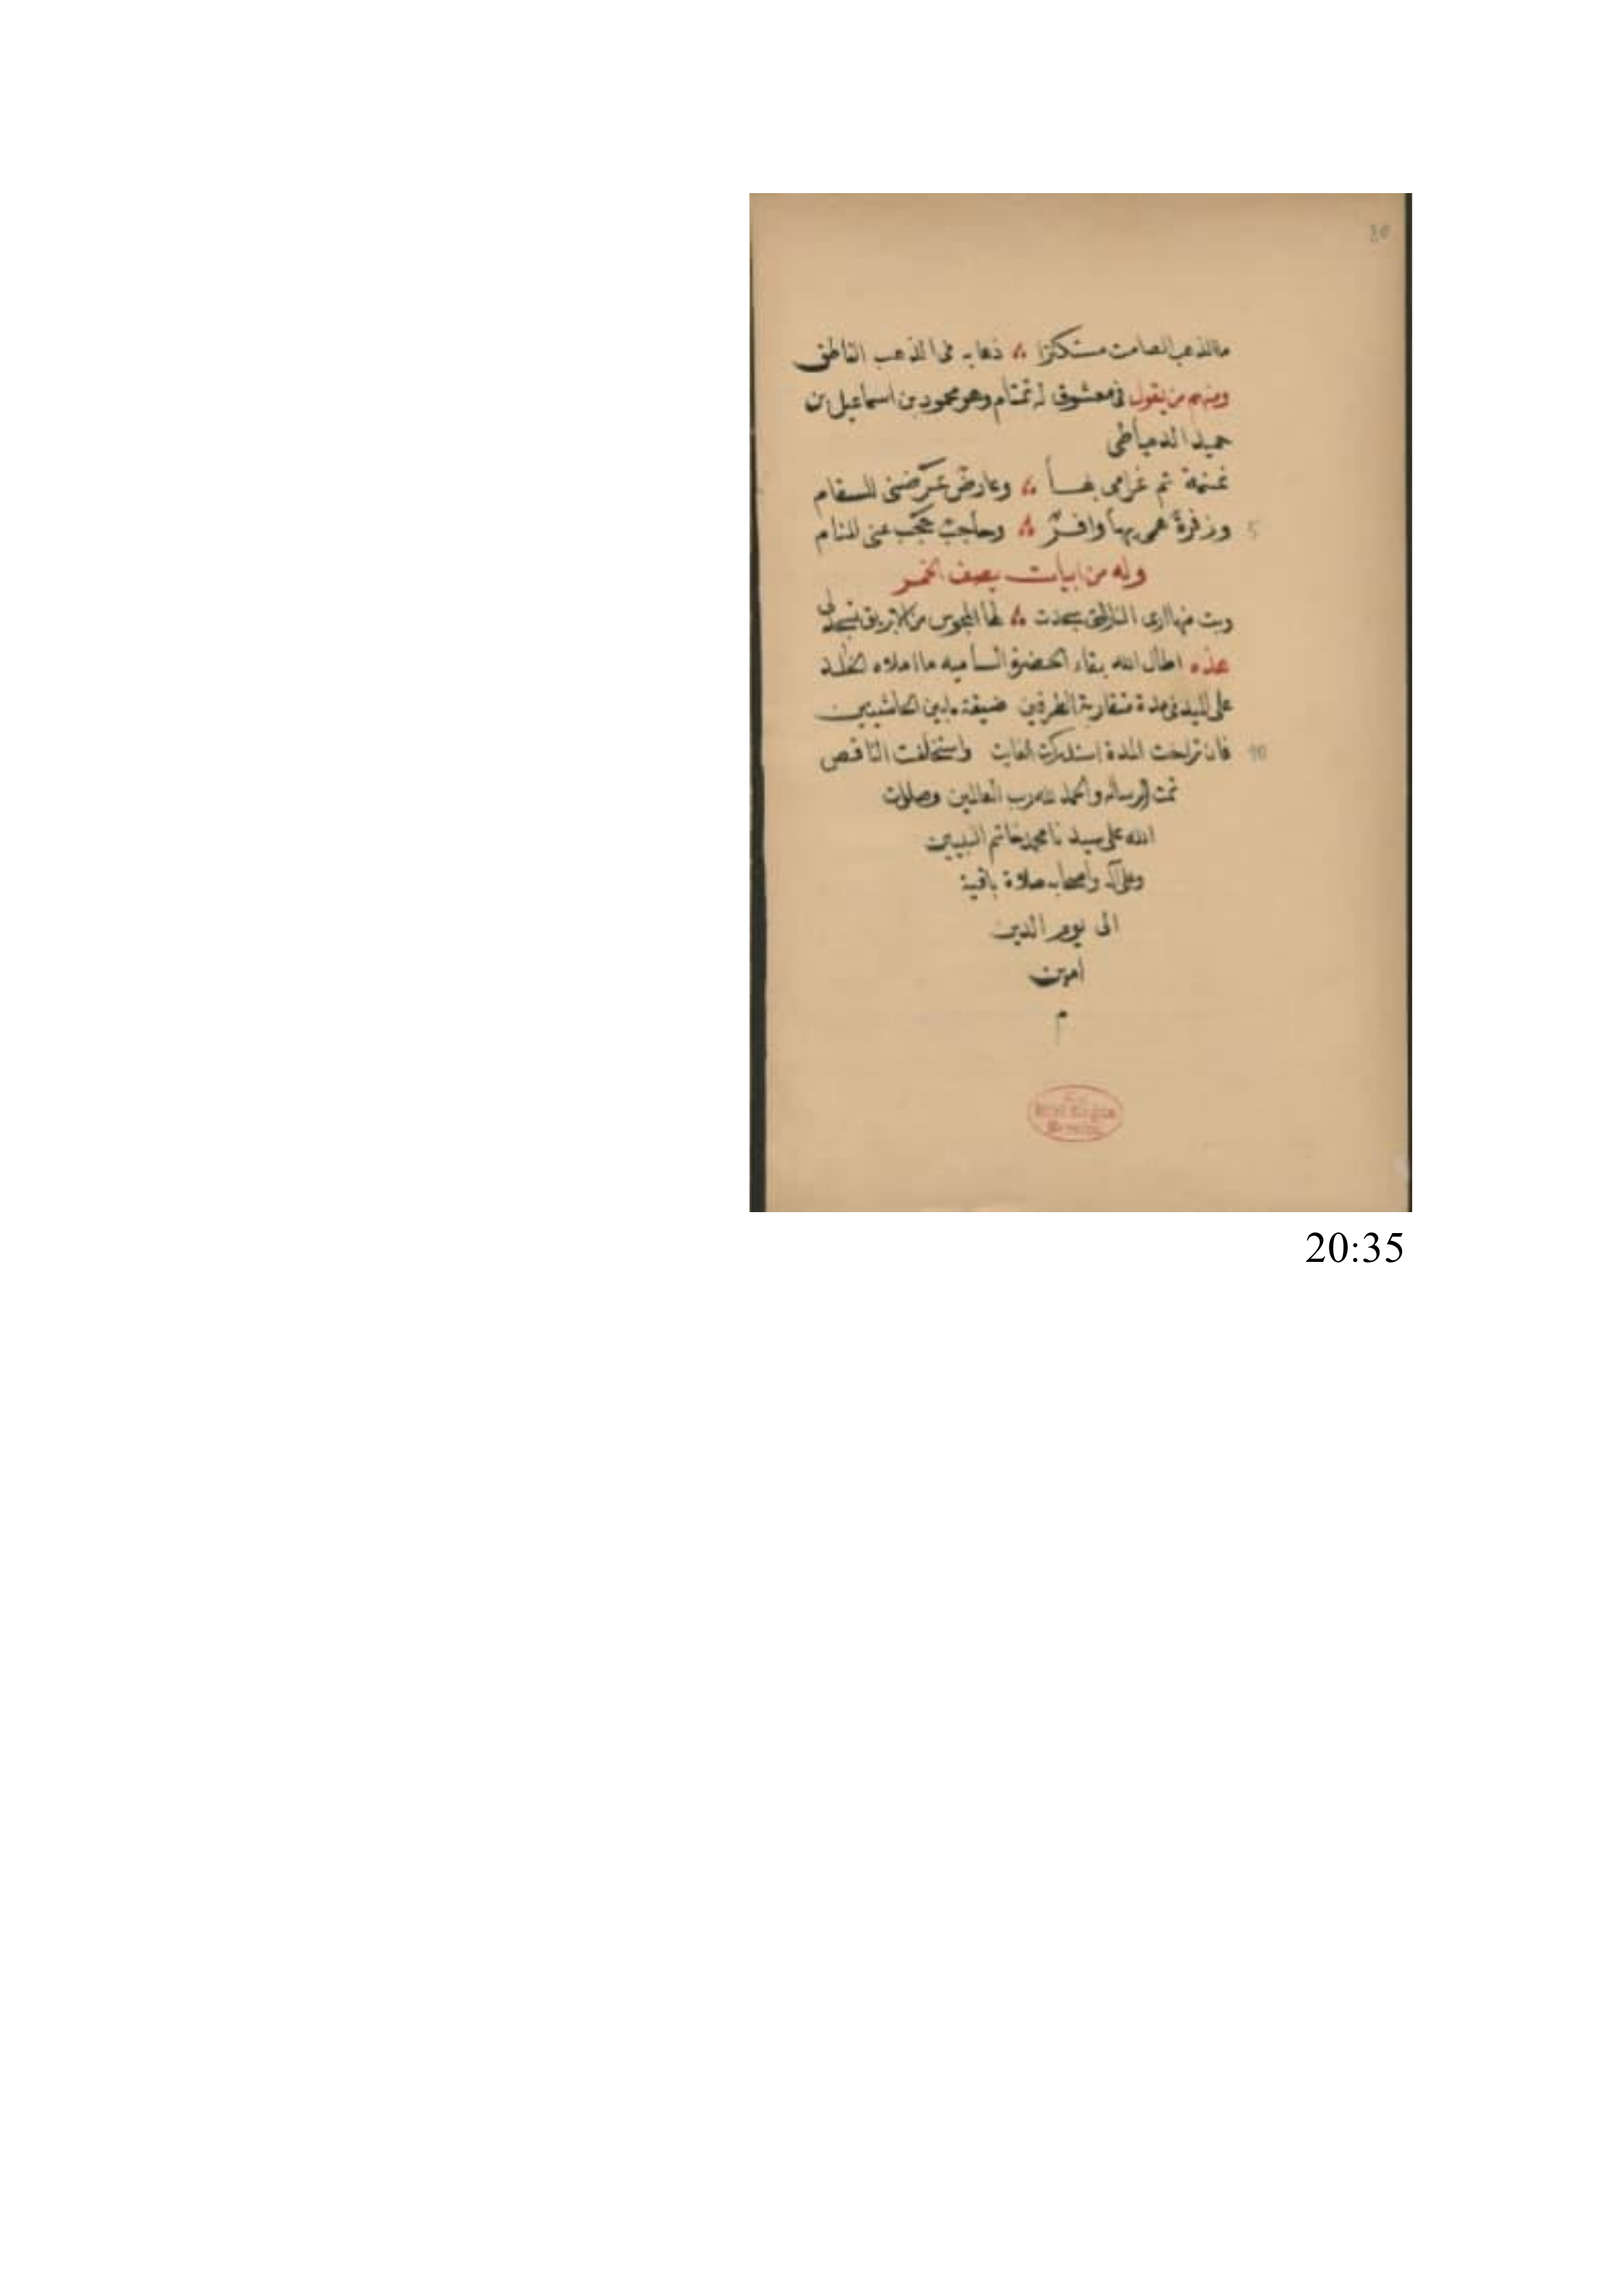 ما الذهب الصامت مستكثرا ؞ ذهابه فى الذهب الناطق
ومنهم من يقول فى معشوق له تمتام وهو محمود بن اسماعيل بن
حميد الدمياطى
تمتمة تم غرامى بها ؞ وعارض عرّضنى للسقام
5 وزفرة همى بها وافر ؞ وحاجب حجّب عنى المنام
وله من ابيات يصف الخمر
وبت منها ارى النار التى سجدت ؞ لها المجوس من الابريق تسجد لى
هذه اطال الله بقاء الحضرة الساميه ما املاه الخلد
على اليد فى مدة متقاربة الطرفين ضيقة ما بين الحاشيتين
10 فان تراخت المدة استدركت الفايت واستخلفت الناقص
تمت الرساله والحمد لله رب العالمين وصلوات
الله على سيدنا محمد خاتم النبيين
وعلى آله واصحابه صلاة باقية
الى يوم الدين
امين
م
20:35